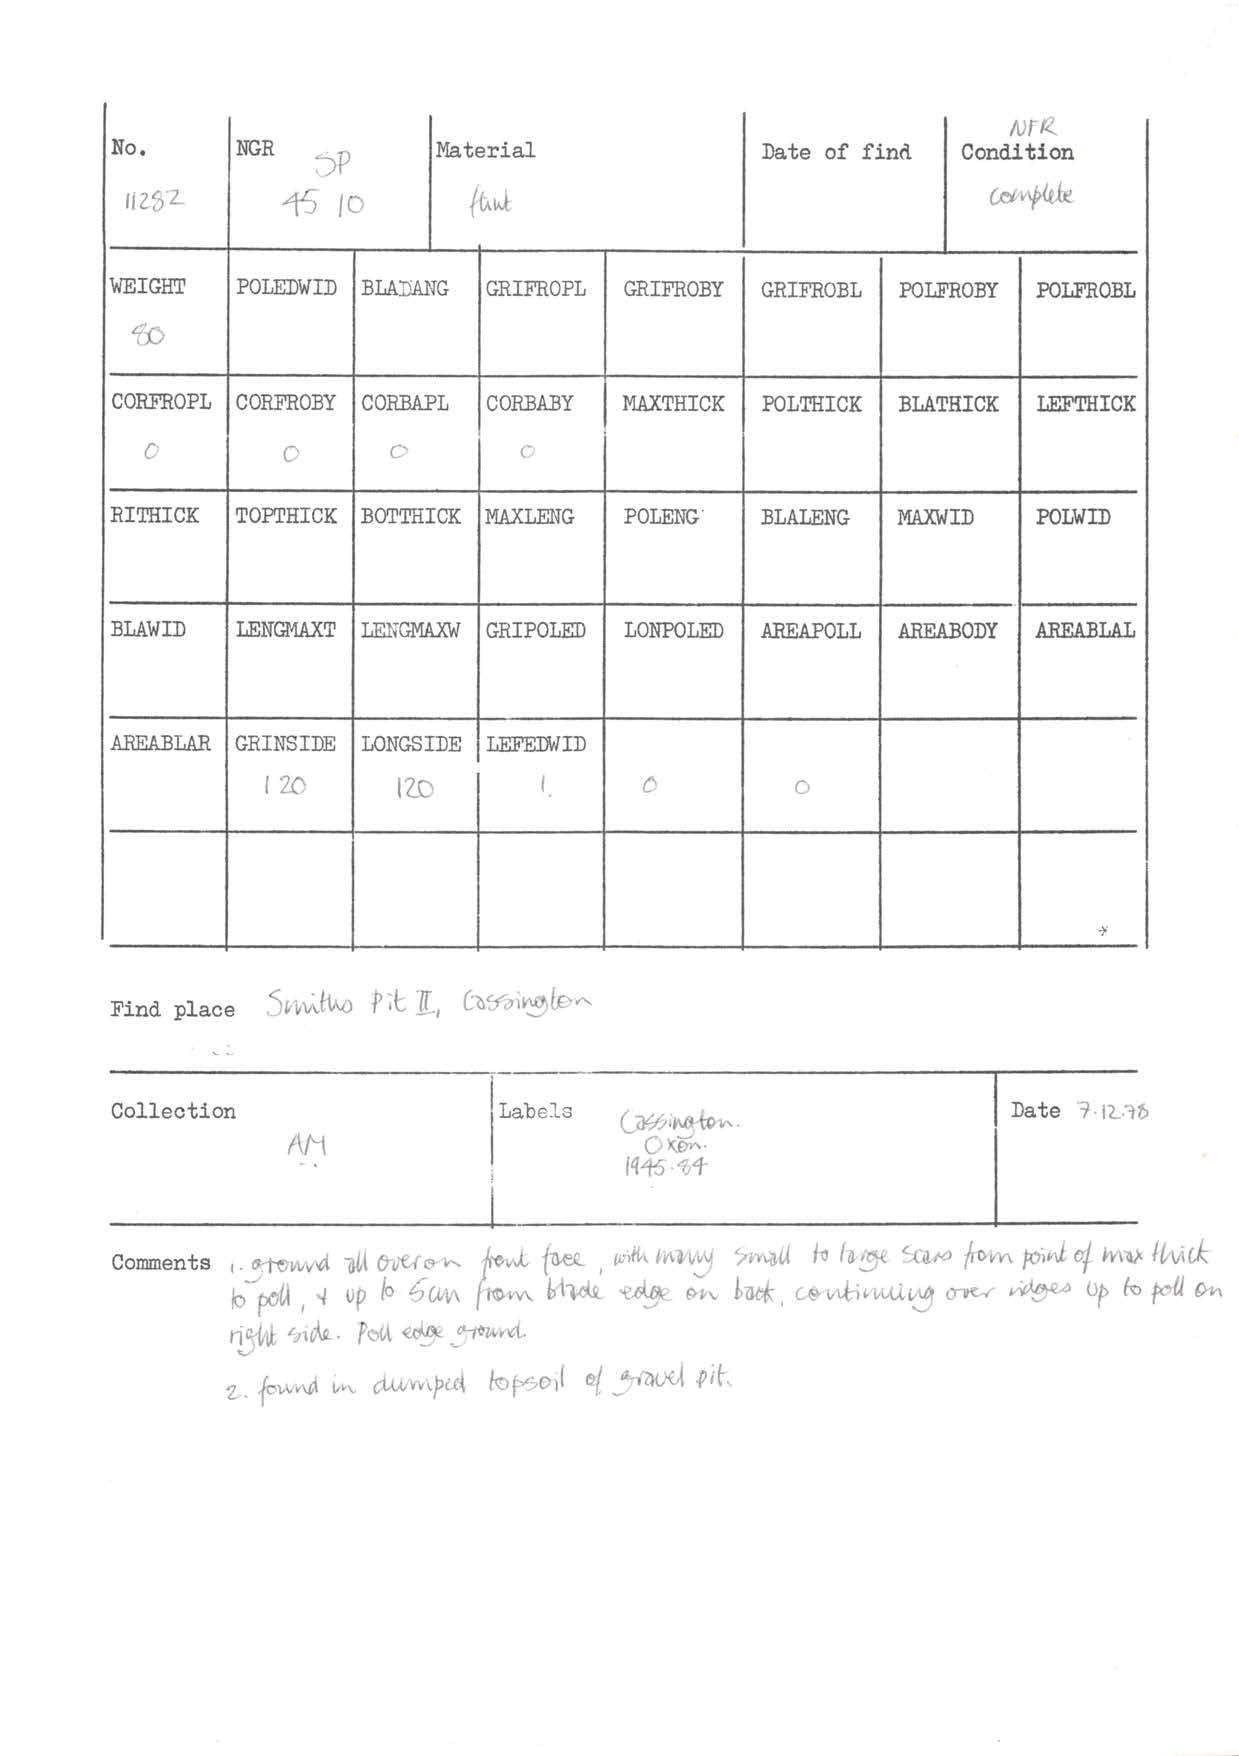 NFR
No. NGR SP Material Date of find Condition
11282 45 10 flint complete
WEIGHT POLEDWID BLADANG GRIFROPL GRIFROBY GRIFROBL POLFROBY POLFROBL
80
CORFROPL CORFROBY CORBAPL CORBABY MAXTHICK POLTHICK BLATHICK LEFTHICK
0 0 0 0
RITHICK TOPTHICK BOTTHICK MAXLENG POLENG BLALENG MAXWID POLWID
BLAWID LENGMAXT LENGMAXW GRIPOLED LONPOLED AREAPOLL AREABODY AREABLAL
AREABLAR GRINSIDE LONGSIDE LEFEDWID
120 120 1. 0 0
*
Find place Smiths Pit II, Cassington
Collection Labels Cassington. Date 7.12.78
AM Oxon.
1945.84
Comments 1. ground all over on front face, with many small to large scars from point of max thick
to poll, & up to 5cm from blade edge on back, continuing over ridges up to poll on
right side. Poll edge ground.
2. found in dumped topsoil of gravel pit.